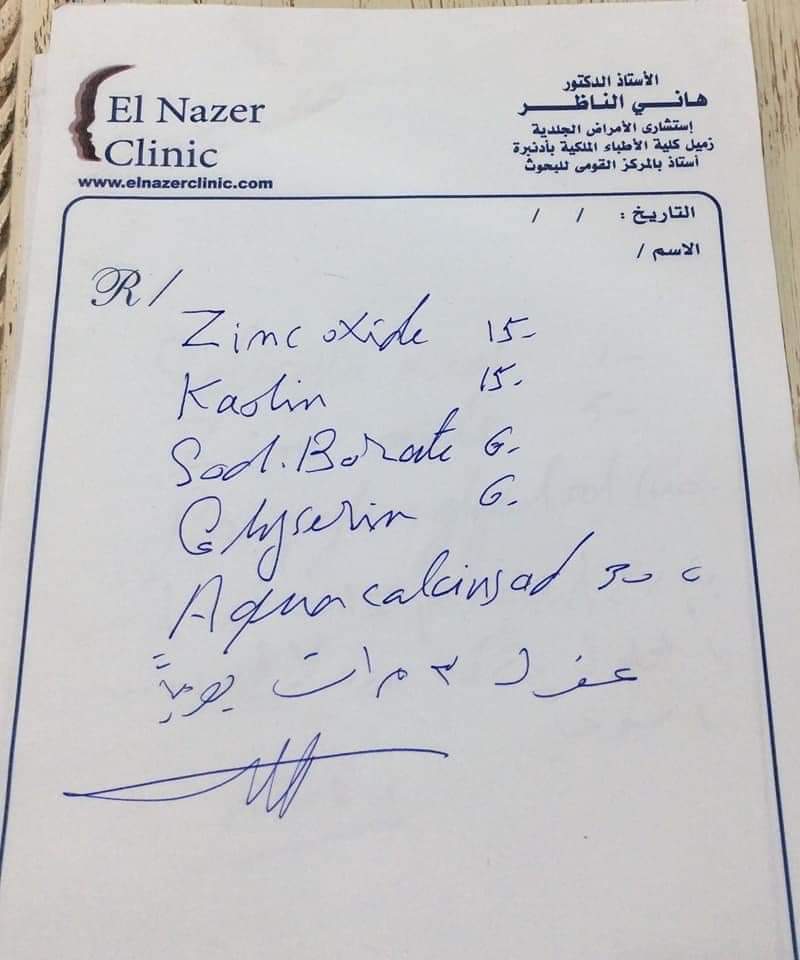 El Nazer
Clinic
www.elnazerclinic.com
الأستاذ الدكتور
هانى الناظر
إستشارى الأمراض الجلدية
زميل كلية الأطباء الملكية بأدنبرة
أستاذ بالمركز القومى للبحوث
التاريخ : / /
الاسم /
R/
Zinc oxide 15.
Kaolin 15.
Sod. Borate 6.
Glyserin 6.
Aqua calcins ad 30 c
٣ مرات يومياً